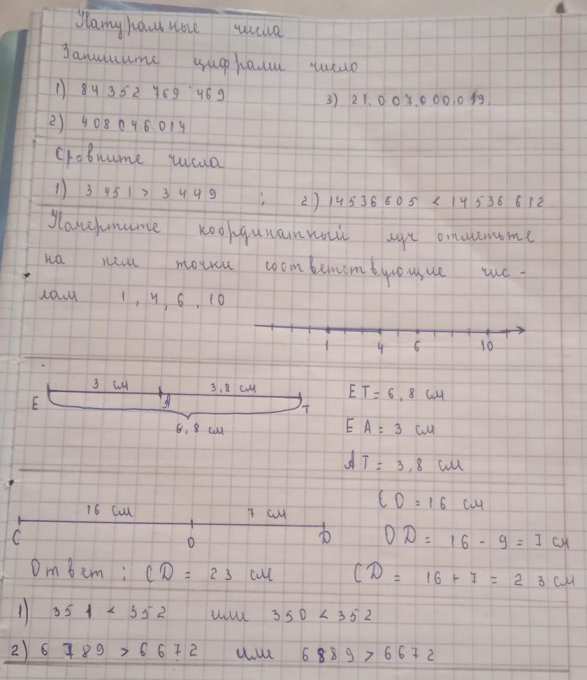 Натуральные числа
Запишите цифрами число
1) 84 352 769 469
3) 21.007.000.019.
2) 408 046 014
Сровните числа
1) 3 451 > 3 449 ; 2) 14536605 < 14536 612
Начертите координатный луч отметьте
на нем точки соответствующие чис-
лам 1, 4, 6, 10
1 4 6 10
3 см 3,8 см
E A T
6,8 см
ET = 6,8 см
EA = 3 см
AT = 3,8 см
16 см 7 см
C O D
CO = 16 см
OD = 16 - 9 = 7 см
Ответ: CD = 23 см
CD = 16 + 7 = 23 см
1) 351 < 352 или 350 < 352
2) 6789 > 6672 или 6889 > 6672